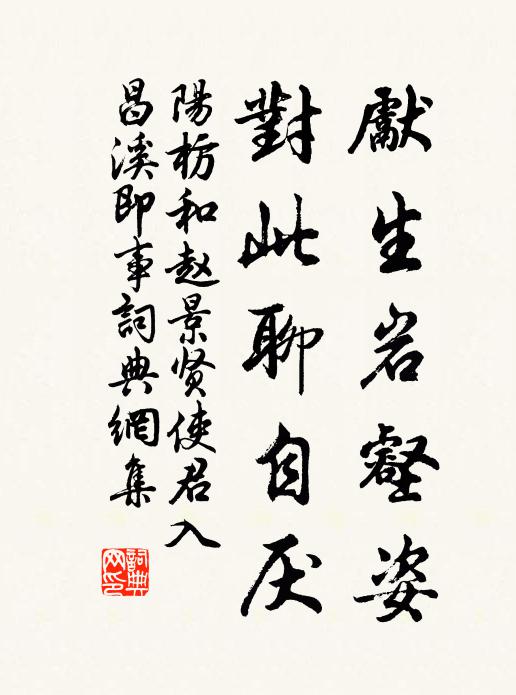 獻生岩壑姿
對此聊自厌
陽枋和赵景贤使君入
昌溪即事詞典網集
詞典網印